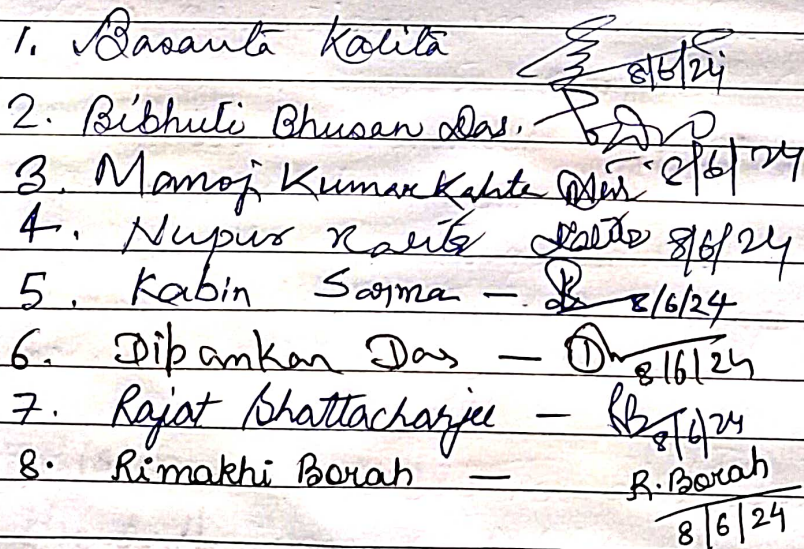 1. Basanta Kalita 8/6/24
2. Bibhuti Bhusan Das.
3. Manoj Kumar Kalita 8/6/24
4. Nupur Kalita Kalita 8/6/24
5. Kabin Sarma - 8/6/24
6. Dipankar Das — 8/6/24
7. Rajat Bhattacharjee — RB 8/6/24
8. Rimakhi Borah — R. Borah
8/6/24